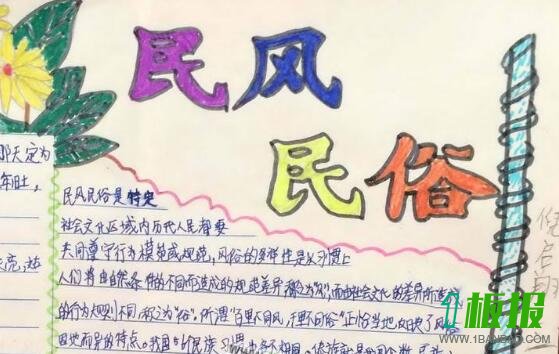 民风
民俗
那天定为
年旺。
民风民俗是特定
社会文化区域内历代人民都要
共同遵守行为模范或规范，风俗的多样性是以习惯上
人们将由自然条件的不同而造成的规范差异称为"风"，而由社会文化的差异所造成
的行为规则不同，称之为"俗"，所谓"百里不同风，千里不同俗"正恰当地反映了风俗
因地而异的特点。我国
板报
WWW.1BANBAO.COM